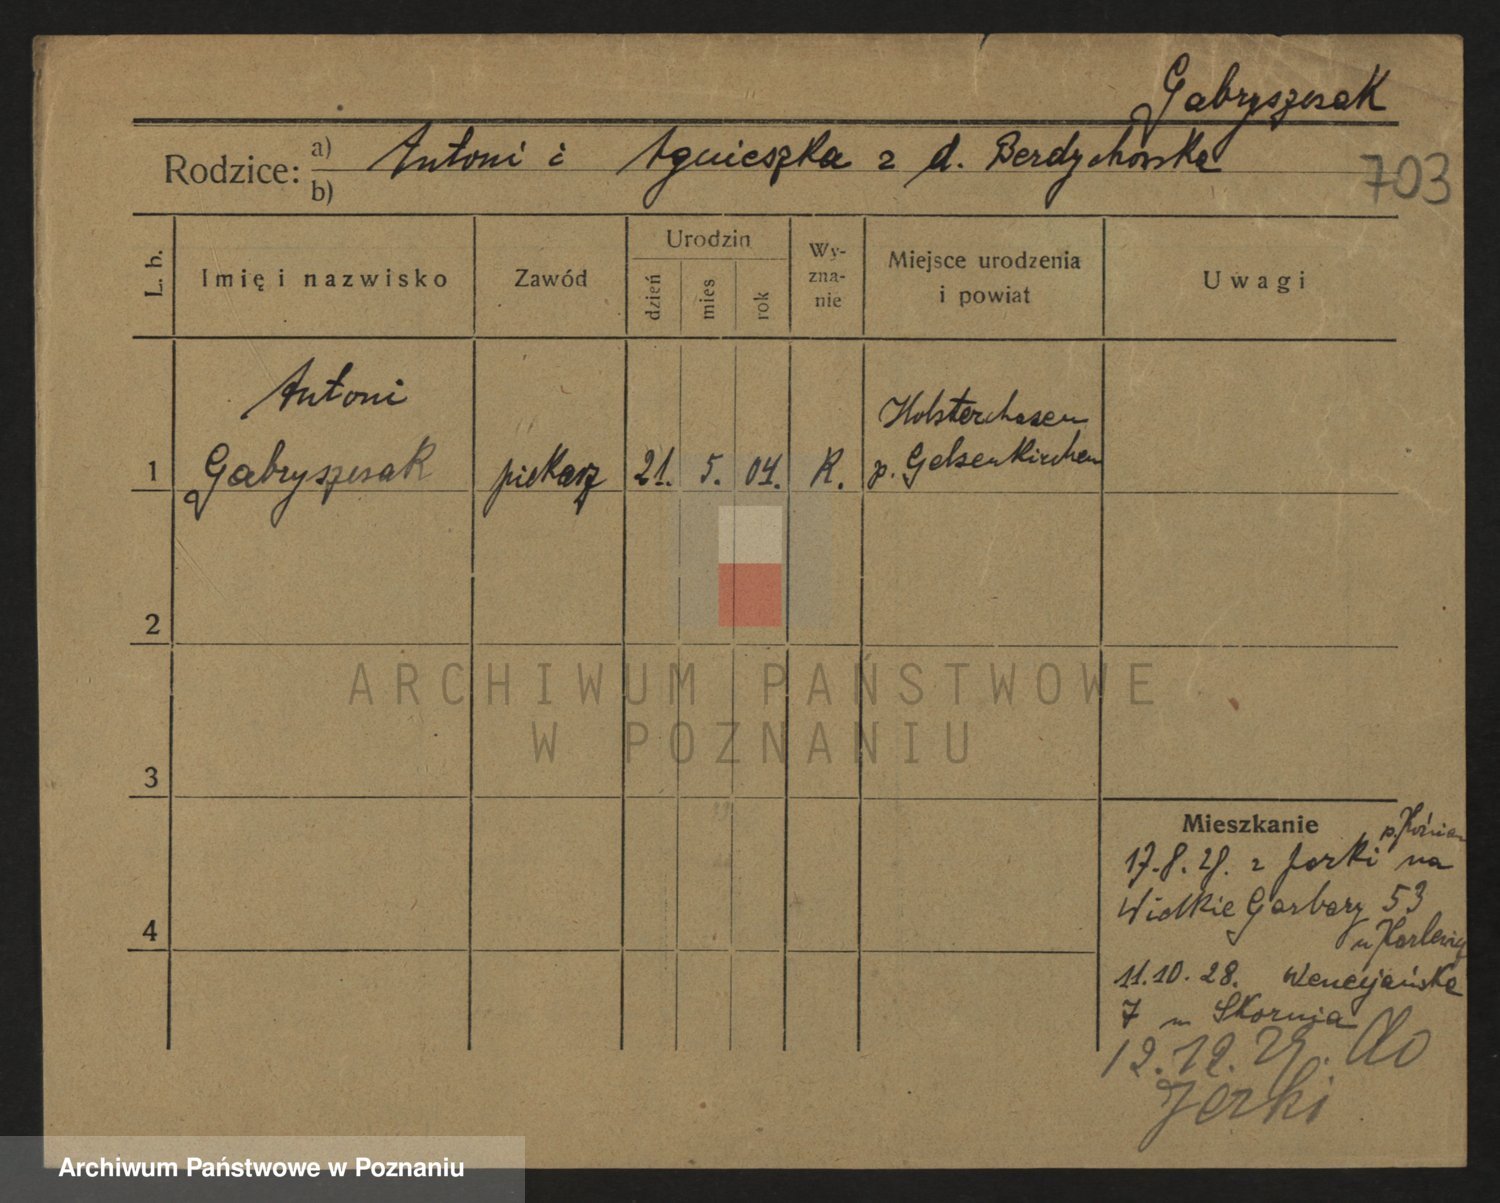 Gabryszczak
Rodzice: a) Antoni i Agnieszka z d. Berdychowska
b)
703
L. b.
Imię i nazwisko
Zawód
Urodzin
dzień
mies
rok
Wy-
zna-
nie
Miejsce urodzenia
i powiat
Uwagi
Antoni
1 Gabryszczak piekarz 21. 5. 04. R.
Holsterhausen
p. Gelsenkirchen
2
3
4
Mieszkanie
17.8.28. z Jerki na
Wielkie Garbary 53
11.10.28. Wenecjańska
7 u Skornia
12.12.29. do
Jerki
ARCHIWUM PAŃSTWOWE
W POZNANIU
Archiwum Państwowe w Poznaniu